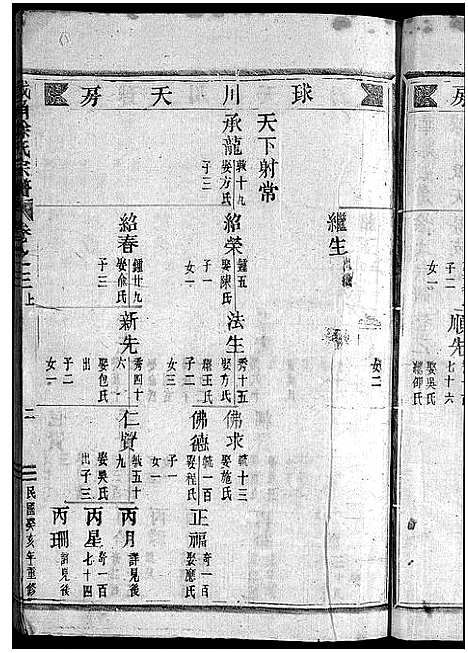 房
子二
女一
順先
七十六
娶吳氏
繼仰氏
球川天房
繼生
女二
天下射常
承龍
敦十九
娶方氏
子三
紹榮
鍾五
娶陳氏
子一
女一
法生
秀十五
娶方氏
繼王氏
子二
女三
佛求
毓十三
娶施氏
佛德
毓一百
娶程氏
子一
女一
正福
奇一百
娶應氏
紹春
鍾廿九
娶俞氏
子三
新先
秀四十
六
娶包氏
出
子二
女一
仁賢
毓五十
九
娶吳氏
出子三
丙月
詳見後
丙星
奇一百
七十四
丙珊
詳見後
氏宗譜
卷之三上
二
民國癸亥年重修